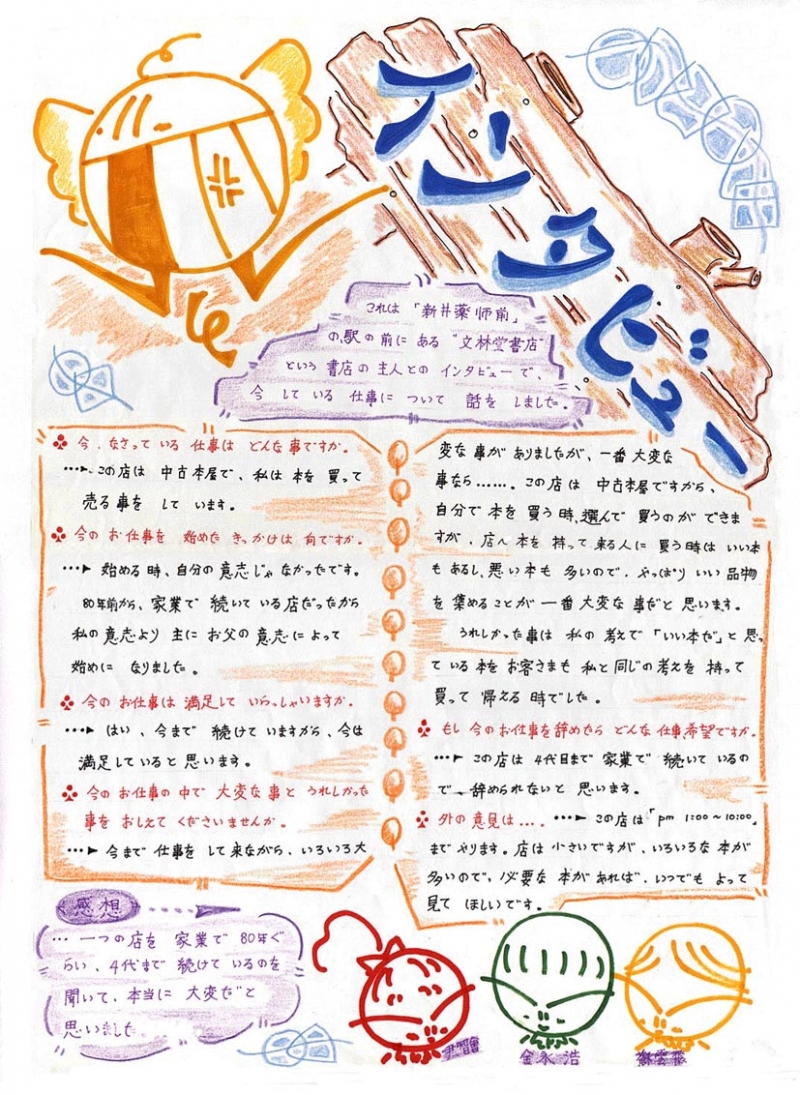 インタビュー
これは「新井薬師前」
の駅の前に ある "文林堂書店"
という 書店の主人との インタビューで、
今 して いる 仕事に ついて 話を しました。
♣ 今、なさって いる 仕事は どんな 事ですか。
…► この店は 中古本屋で、私は 本を 買って
売る事を して います。
♣ 今の お仕事を 始めた きっかけは 何ですか。
…► 始める 時、自分の 意志じゃ なかったです。
80年前から、家業で 続いて いる店だったから
私の 意志より 主に お父の 意志に よって
始めに なりました。
♣ 今の お仕事は 満足して いらっしゃいますか。
…► はい、今まで 続けて いますから、今は
満足していると 思います。
♣ 今の お仕事の 中で 大変な 事と うれしかった
事を おしえて くださいませんか。
…► 今まで 仕事を して 来ながら、いろいろ大
変な 事が ありましたが、一番 大変な
事なら……。この店は 中古本屋ですから、
自分で 本を 買う 時、選んで 買うのが できま
すが、店へ 本を 持って 来る人に 買う時は いい本
も あるし、悪い 本も 多いので、やっぱり いい 品物
を 集めることが 一番 大変な 事だと 思います。
うれしかった事は 私の 考えで「いい本だ」と 思っ
て いる 本を お客さまも 私と 同じの 考えを 持って
買って 帰える 時でした。
♣ もし 今のお仕事を辞めたら どんな 仕事、希望ですか。
…► この店は 4代目まで 家業で 続いて いるの
で 辞められないと 思います。
♣ 外の 意見は…. …► この店は「pm 1:00~10:00」
まで やります。店は 小さいですが、いろいろな 本が
多いので、必要な 本が あれば、いつでも よって
見て ほしいです。
感想
… 一つの 店を 家業で 80年ぐ
らい、4代まで 続けて いるのを
聞いて、本当に 大変だと
思いました。
金永浩